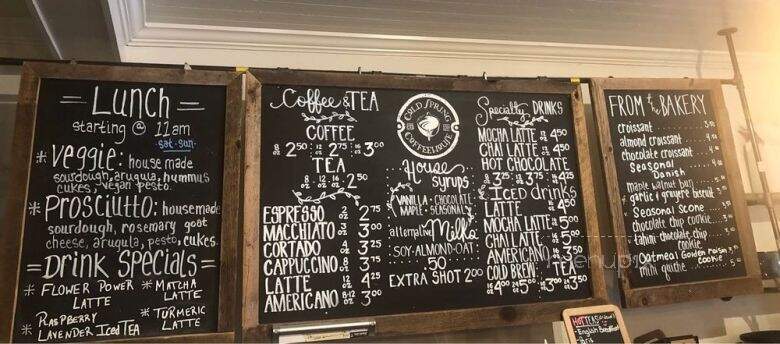 Lunch
starting @ 11am
sat-sun
* Veggie: house made
sourdough, arugula, hummus
cukes, vegan pesto.
* Prosciutto: housemade
sourdough, rosemary goat
cheese, arugula, pesto, cukes.
=Drink Specials=
* FLOWER POWER
LATTE
* RASPBERRY
LAVENDER ICED TEA
* MATCHA
LATTE
* TURMERIC
LATTE
Coffee & TEA
COFFEE
8 oz 2.50 12 oz 2.75 16 oz 3.00
TEA
ESPRESSO 2 oz 2.75
MACCHIATO 3 oz 3.00
CORTADO 4 oz 3.25
CAPPUCCINO 8 oz 3.75
LATTE 12 oz 4.25
AMERICANO 8-12 oz 3.00
COLD SPRING
COFFEEHOUSE
House
syrups
VANILLA - CHOCOLATE
MAPLE - SEASONAL
alternative Milks
SOY-ALMOND-OAT
.50
EXTRA SHOT 2.00
Specialty DRINKS
MOCHA LATTE 4.50
CHAI LATTE 4.50
HOT CHOCOLATE
8 oz 3.25 12 oz 3.75 16 oz 4.25
Iced drinks
LATTE 4.50
MOCHA LATTE 5.00
CHAI LATTE 5.00
AMERICANO 3.50
COLD BREW TEA
16 oz 4.00 24 oz 5.00 3.50
FROM the BAKERY
croissant
almond croissant
chocolate croissant
Seasonal
Danish
maple walnut bun
* garlic & gruyere biscuit
Seasonal Scone
chocolate chip cookie
tahini chocolate chip
cookie
Oatmeal Golden Raisin
cookie
mini quiche
HOT TEAS
- English Breakfast